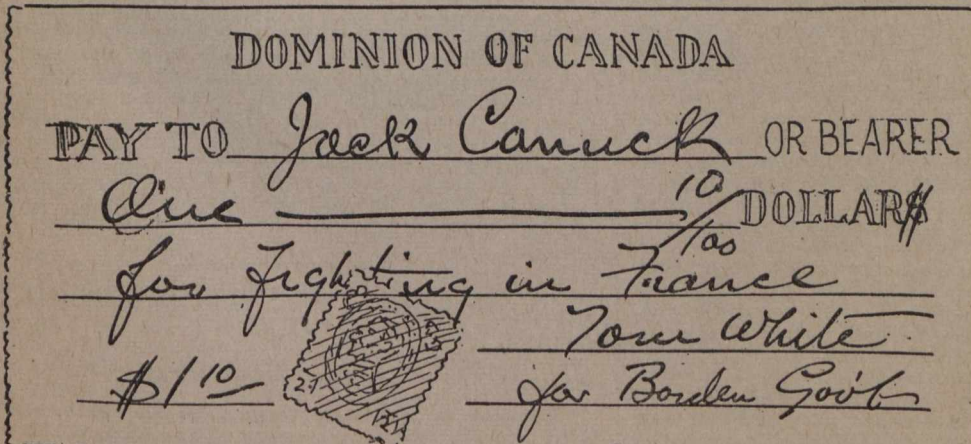 DOMINION OF CANADA
PAY TO Jack Canuck OR BEARER
One 10/100 DOLLAR$
for fighting in France
Tom White
$1 10 for Borden Gov't